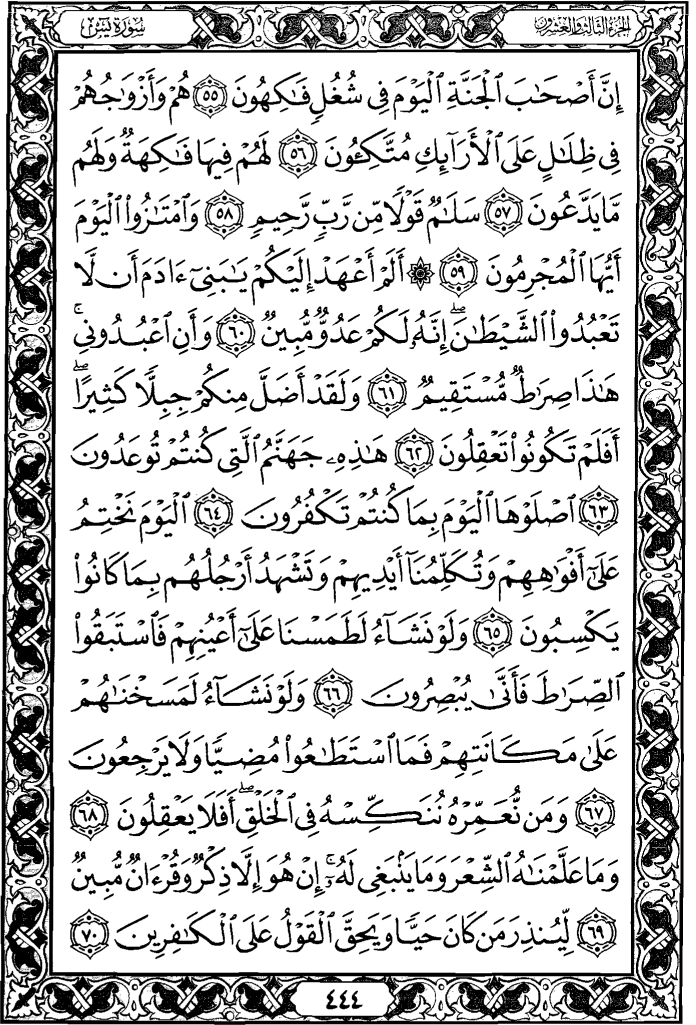 الجزء الثالث والعشرون
سورة يس
إِنَّ أَصْحَٰبَ ٱلْجَنَّةِ ٱلْيَوْمَ فِى شُغُلٍ فَٰكِهُونَ ٥٥ هُمْ وَأَزْوَٰجُهُمْ
فِى ظِلَٰلٍ عَلَى ٱلْأَرَآئِكِ مُتَّكِـُٔونَ ٥٦ لَهُمْ فِيهَا فَٰكِهَةٌ وَلَهُم
مَّا يَدَّعُونَ ٥٧ سَلَٰمٌ قَوْلًا مِّن رَّبٍّ رَّحِيمٍ ٥٨ وَٱمْتَٰزُوا۟ ٱلْيَوْمَ
أَيُّهَا ٱلْمُجْرِمُونَ ٥٩ ۞ أَلَمْ أَعْهَدْ إِلَيْكُمْ يَٰبَنِىٓ ءَادَمَ أَن لَّا
تَعْبُدُوا۟ ٱلشَّيْطَٰنَ ۖ إِنَّهُۥ لَكُمْ عَدُوٌّ مُّبِينٌ ٦٠ وَأَنِ ٱعْبُدُونِى ۚ
هَٰذَا صِرَٰطٌ مُّسْتَقِيمٌ ٦١ وَلَقَدْ أَضَلَّ مِنكُمْ جِبِلًّا كَثِيرًا ۖ
أَفَلَمْ تَكُونُوا۟ تَعْقِلُونَ ٦٢ هَٰذِهِۦ جَهَنَّمُ ٱلَّتِى كُنتُمْ تُوعَدُونَ
٦٣ ٱصْلَوْهَا ٱلْيَوْمَ بِمَا كُنتُمْ تَكْفُرُونَ ٦٤ ٱلْيَوْمَ نَخْتِمُ
عَلَىٰٓ أَفْوَٰهِهِمْ وَتُكَلِّمُنَآ أَيْدِيهِمْ وَتَشْهَدُ أَرْجُلُهُم بِمَا كَانُوا۟
يَكْسِبُونَ ٦٥ وَلَوْ نَشَآءُ لَطَمَسْنَا عَلَىٰٓ أَعْيُنِهِمْ فَٱسْتَبَقُوا۟
ٱلصِّرَٰطَ فَأَنَّىٰ يُبْصِرُونَ ٦٦ وَلَوْ نَشَآءُ لَمَسَخْنَٰهُمْ
عَلَىٰ مَكَانَتِهِمْ فَمَا ٱسْتَطَٰعُوا۟ مُضِيًّا وَلَا يَرْجِعُونَ
٦٧ وَمَن نُّعَمِّرْهُ نُنَكِّسْهُ فِى ٱلْخَلْقِ ۖ أَفَلَا يَعْقِلُونَ ٦٨
وَمَا عَلَّمْنَٰهُ ٱلشِّعْرَ وَمَا يَنۢبَغِى لَهُۥٓ ۚ إِنْ هُوَ إِلَّا ذِكْرٌ وَقُرْءَانٌ مُّبِينٌ
٦٩ لِّيُنذِرَ مَن كَانَ حَيًّا وَيَحِقَّ ٱلْقَوْلُ عَلَى ٱلْكَٰفِرِينَ ٧٠
٤٤٤